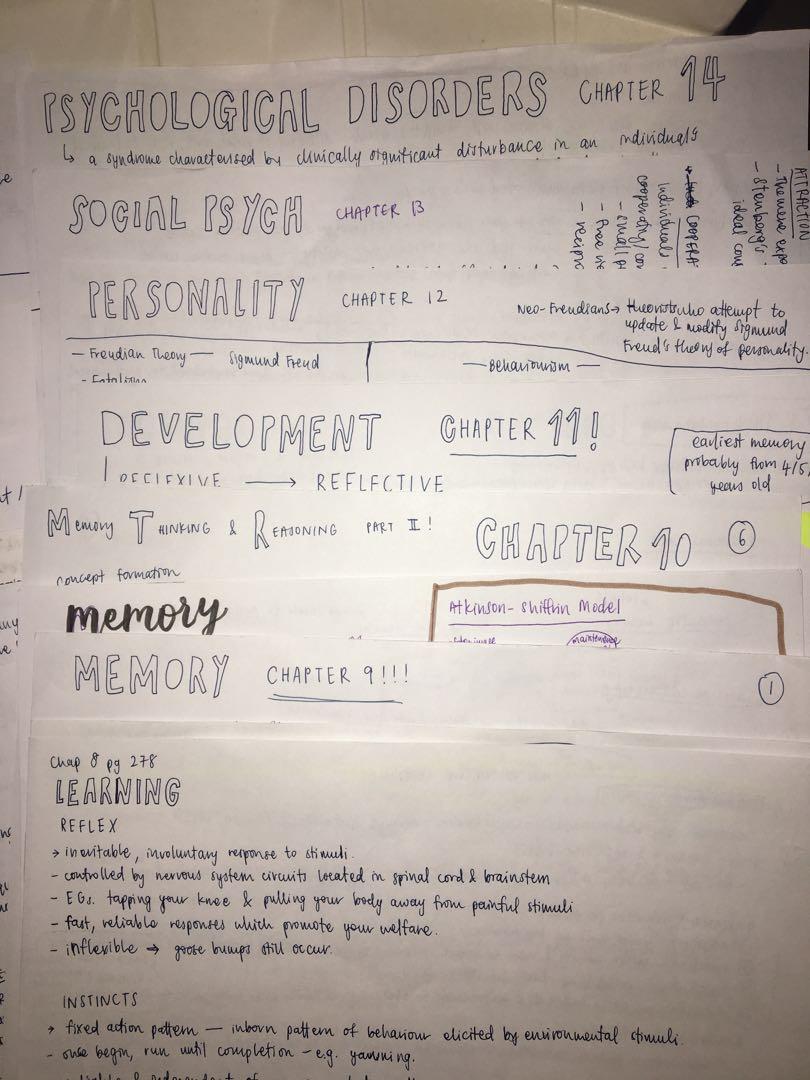 PSYCHOLOGICAL DISORDERS CHAPTER 14
↳ a syndrome characterised by clinically significant disturbance in an individual's
SOCIAL PSYCH CHAPTER 13
COOPERA
individuals
cooperating/con
- small p
- free
- recipro
ATTRACTION
- The mere expo
- Stenberg's
ideal cou
PERSONALITY CHAPTER 12
Neo-Freudians → theorists who attempt to
update & modify Sigmund
Freud's theory of personality.
— Freudian Theory — Sigmund Freud
— Behaviourism —
DEVELOPMENT CHAPTER 11!
earliest memory
probably from 4/5
years old
REFLECTIVE
Memory THINKING & REASONING PART II! CHAPTER 10 6
concept formation
memory
Atkinson-Shiffrin Model
maintenance
MEMORY CHAPTER 9!!! 1
Chap 8 pg 278
LEARNING
REFLEX
→ inevitable, involuntary response to stimuli.
- controlled by nervous system circuits located in spinal cord & brainstem
- EGs. tapping your knee & pulling your body away from painful stimuli
- fast, reliable responses which promote your welfare.
- inflexible → goose bumps still occur.
INSTINCTS
→ fixed action pattern — inborn pattern of behaviour elicited by environmental stimuli.
- once begin, run until completion - e.g. yawning.